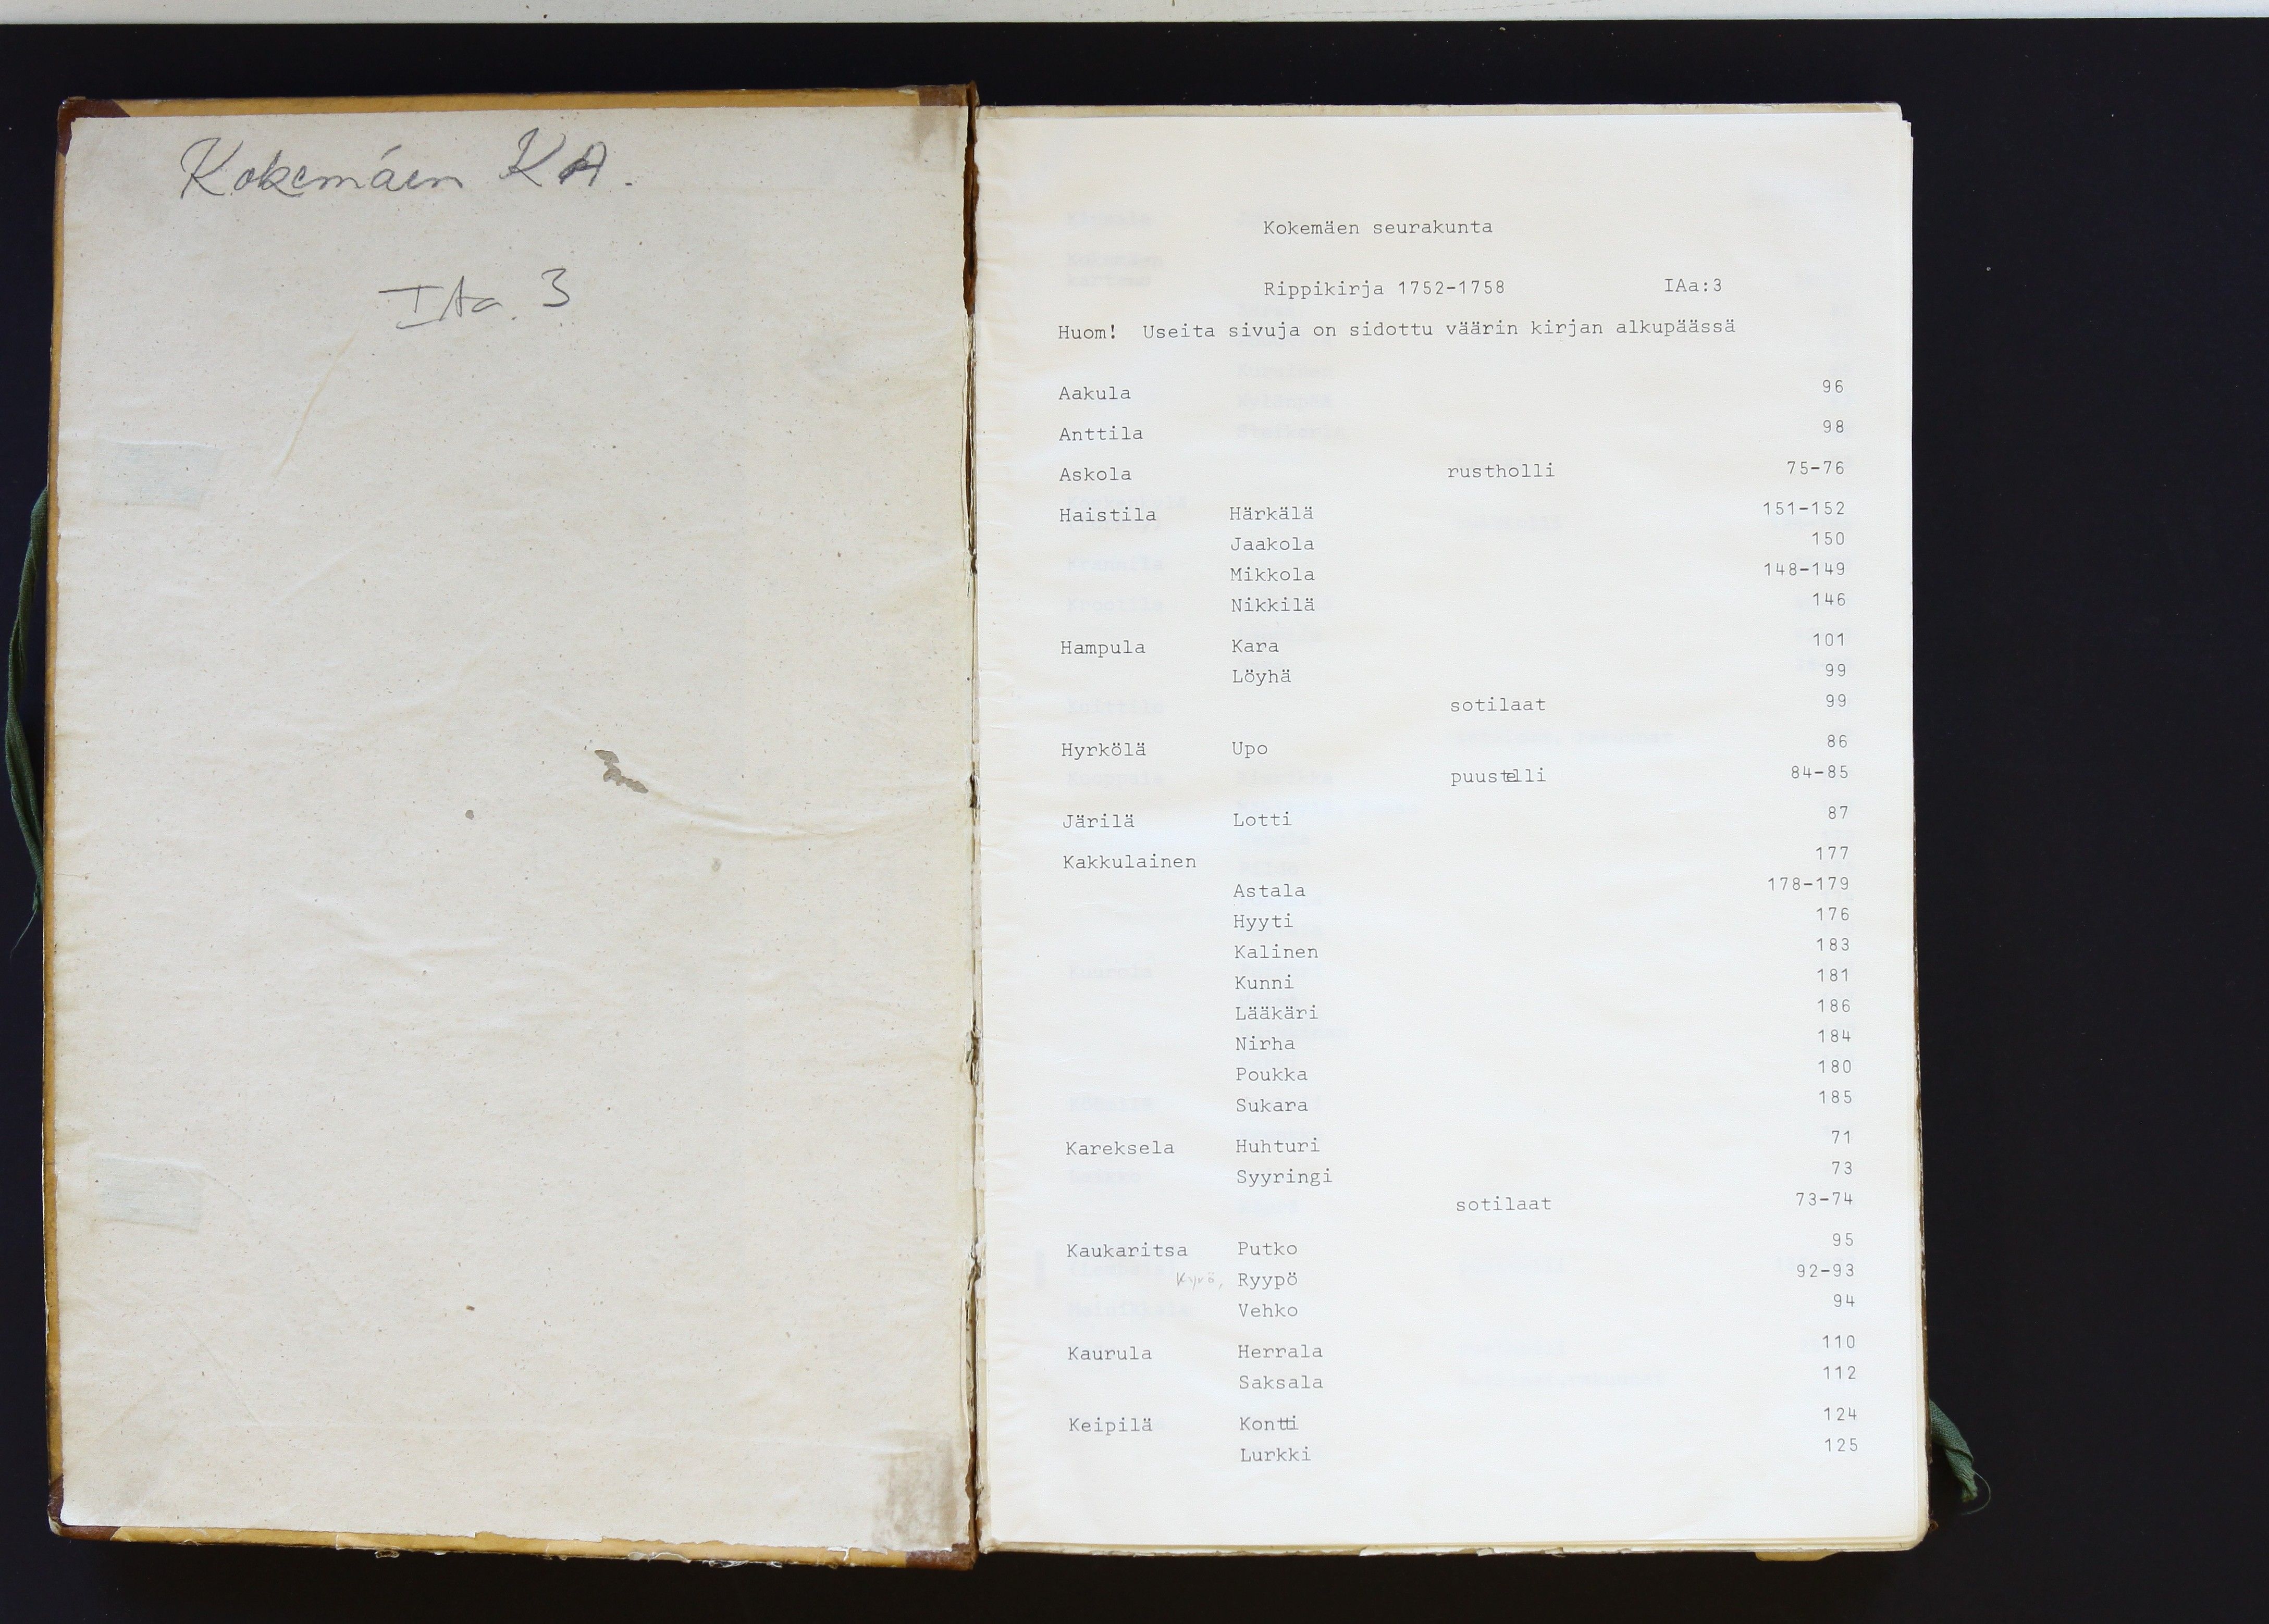 Kokemäen KA.
IAa. 3
Kokemäen seurakunta
Rippikirja 1752-1758 IAa:3
Huom! Useita sivuja on sidottu väärin kirjan alkupäässä
Aakula 96
Anttila 98
Askola rustholli 75-76
Haistila Härkälä 151-152
Jaakola 150
Mikkola 148-149
Nikkilä 146
Hampula Kara 101
Löyhä 99
sotilaat 99
Hyrkölä Upo 86
puustelli 84-85
Järilä Lotti 87
Kakkulainen 177
Astala 178-179
Hyyti 176
Kalinen 183
Kunni 181
Lääkäri 186
Nirha 184
Poukka 180
Sukara 185
Kareksela Huhturi 71
Syyringi 73
sotilaat 73-74
Kaukaritsa Putko 95
Kyrö, Ryypö 92-93
Vehko 94
Kaurula Herrala 110
Saksala 112
Keipilä Kontti 124
Lurkki 125